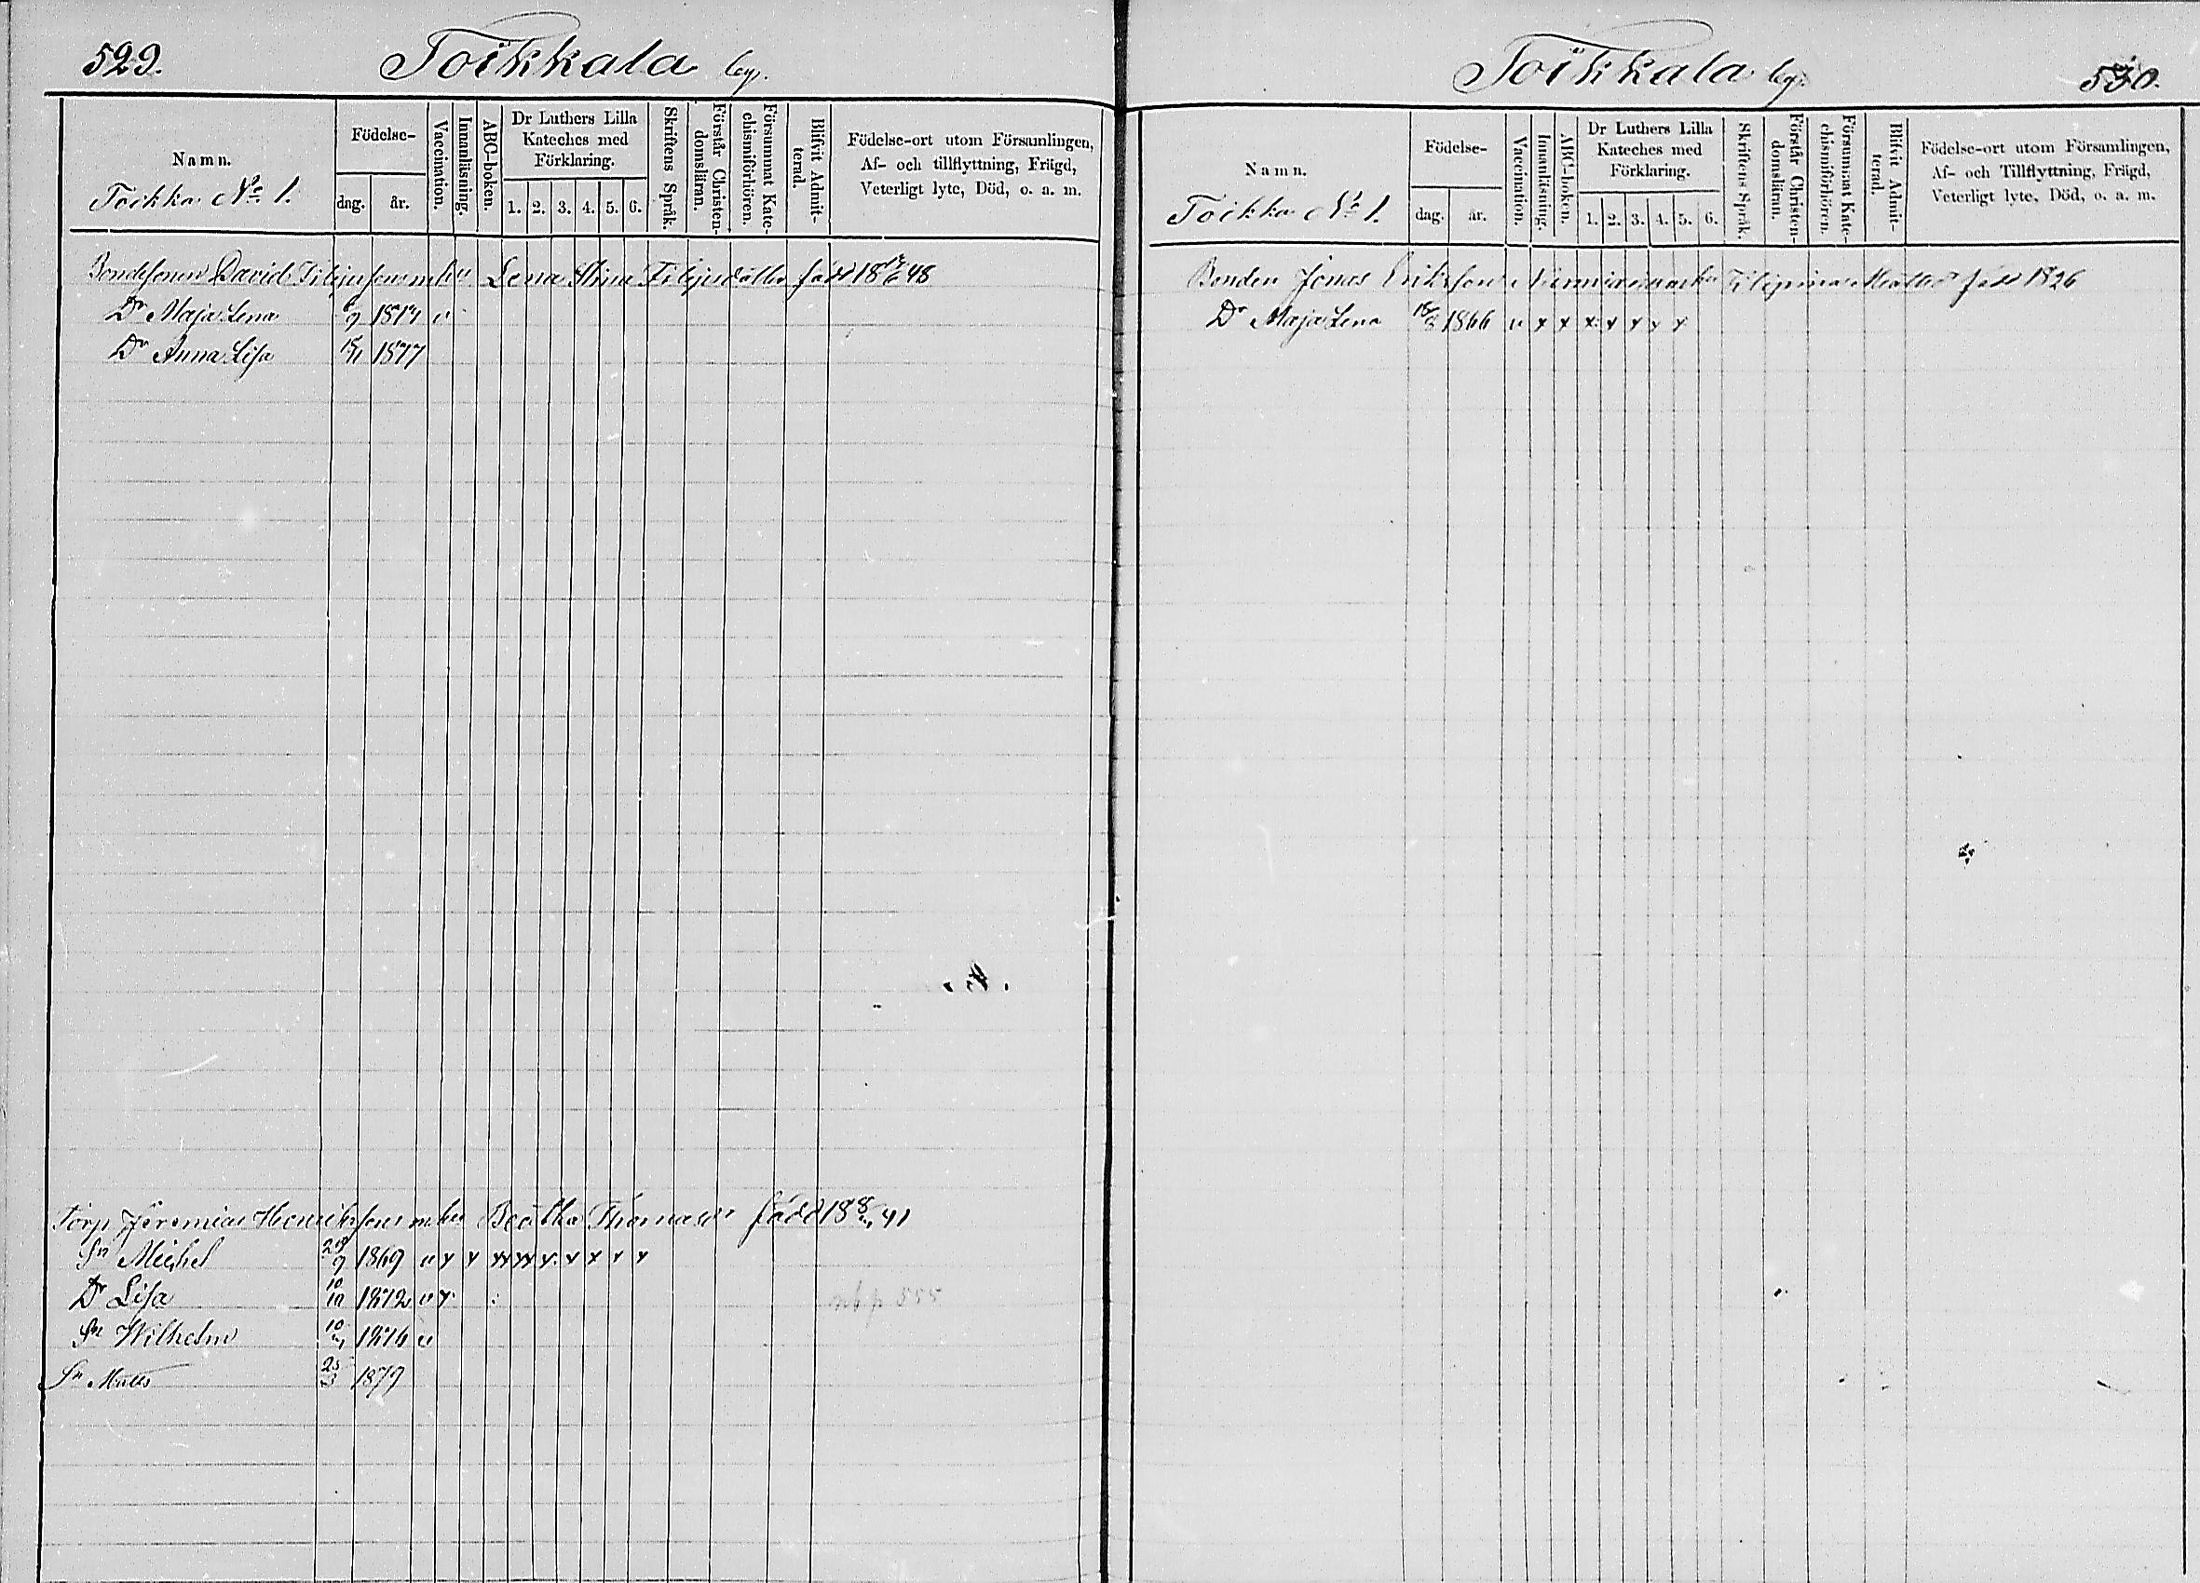 529.
Toikkala by.
Namn.
Toikka No 1.
Födelse-
dag. år.
Vaccination.
Innanläsning.
ABC-boken.
Dr Luthers Lilla Kateches med Förklaring.
1. 2. 3. 4. 5. 6.
Skriftens Språk.
Förstår Christendomsläran.
Försummat Katechismiförhören.
Blifvit Admitterad.
Födelse-ort utom Församlingen, Af- och tillflyttning, Frägd, Veterligt lyte, Död, o. a. m.
Bondesonen David Filipsons enka Lena Stina Filipsdotter född 18 48
Dr Maja Lena 9 1874 v
Dr Anna Lisa 1877
Torp. Jeremias Henrikssons enka Beatha Thomasdr född 18 41
Sn Michel 29/9 1869 v x x xx xx x x x x x
Dr Lisa 10/10 1872 v x
Sn Wilhelm 10 1876 v
Sn Matts 25/3 1879
530.
Toikkala by.
Namn.
Toikka No 1.
Födelse-
dag. år.
Vaccination.
Innanläsning.
ABC-boken.
Dr Luthers Lilla Kateches med Förklaring.
1. 2. 3. 4. 5. 6.
Skriftens Språk.
Förstår Christendomsläran.
Försummat Katechismiförhören.
Blifvit Admitterad.
Födelse-ort utom Församlingen, Af- och Tillflyttning, Frägd, Veterligt lyte, Död, o. a. m.
Bonden Jonas Eriksson född 1826
Dr Maja Lena 1866 v x x x x x x x